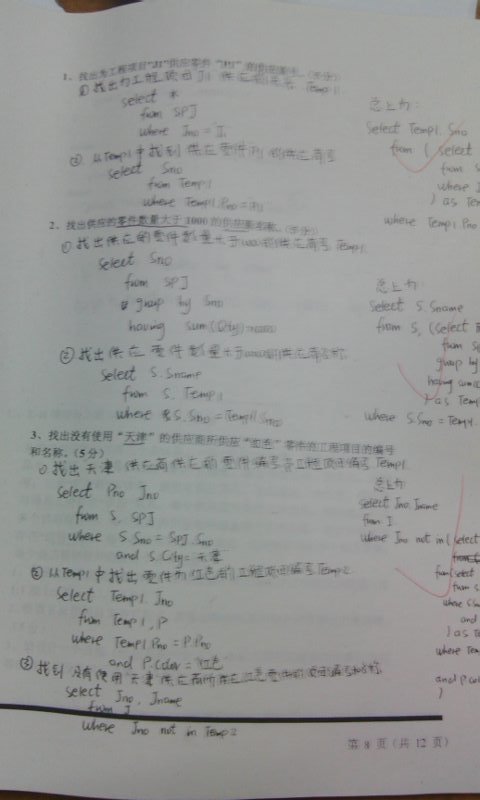 1、找出为工程项目"J1"供应零件"P1"
① 找出为工程项目J1 供应的 Temp1
select *
from SPJ
where Jno = J1
② 从Temp1中找到供应零件P1的供应商号
select Sno
from Temp1
where Temp1.Pno = P1
总上为:
Select Temp1.Sno
from ( select
from S
where J
) as Tem
where Temp1.Pno
2、找出供应的零件数量大于1000的供应商名称。(5分)
① 找出供应的零件数量大于1000的供应商号 Temp1.
Select Sno
from SPJ
group by Sno
having sum(Qty)>1000
② 找出供应零件数量大于1000的供应商名称.
Select S.Sname
from S, Temp1
where S.Sno = Temp1.Sno
总上为:
Select S.Sname
from S, (Select
from SP
group by
having sum(
) as Temp
where S.Sno = Temp1.
3、找出没有使用"天津"的供应商所供应"红色"零件的工程项目的编号
和名称。(5分)
① 找出天津供应商供应的零件编号及工程项目编号 Temp1.
Select Pno Jno
from S, SPJ
where S.Sno = SPJ.Sno
and S.City = 天津
② 从Temp1中找出零件为红色的工程项目编号 Temp2
Select Temp1.Jno
from Temp1, P
where Temp1.Pno = P.Pno
and P.Color = 红色
③ 找到没有使用天津供应商所供应红色零件的项目编号和名称
select Jno, Jname
from J
where Jno not in Temp2
总上为
select Jno, Jname
from J
where Jno not in ( select
from(select
from S
where S.Sn
and
) as Te
where Tem
and P.col
)
第 8 页(共 12 页)